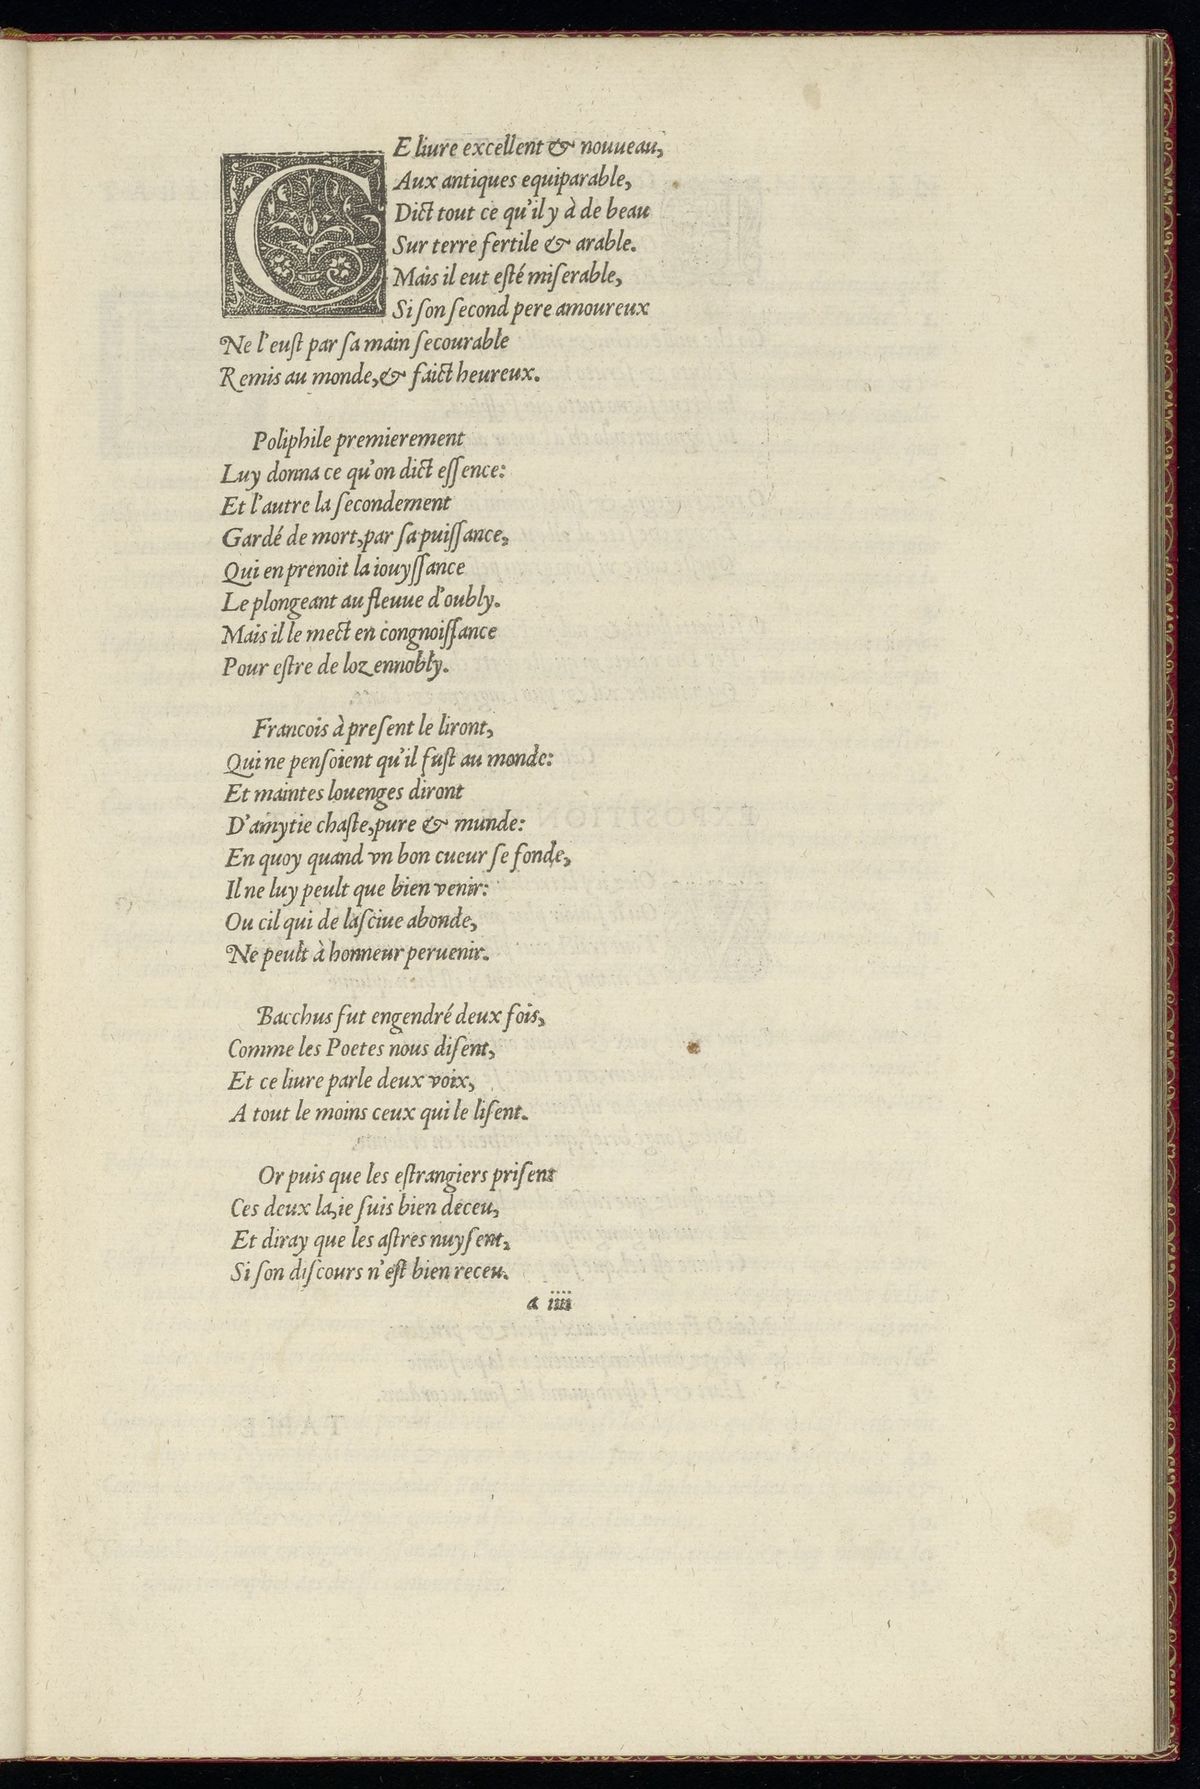 CE liure excellent & nouueau,
Aux antiques equiparable,
Dict tout ce qu'il y à de beau
Sur terre fertile & arable.
Mais il eut eſté miſerable,
Si ſon ſecond pere amoureux
Ne l'euſt par ſa main ſecourable
Remis au monde, & faict heureux.
Poliphile premierement
Luy donna ce qu'on dict eſſence:
Et l'autre la ſecondement
Gardé de mort, par ſa puiſſance,
Qui en prenoit la iouyſſance
Le plongeant au fleuue d'oubly.
Mais il le mect en congnoiſſance
Pour eſtre de loz ennobly.
Francois à preſent le liront,
Qui ne penſoient qu'il fuſt au monde:
Et maintes louenges diront
D'amytie chaſte, pure & munde:
En quoy quand vn bon cueur ſe fonde,
Il ne luy peult que bien venir:
Ou cil qui de laſciue abonde,
Ne peult à honneur peruenir.
Bacchus fut engendré deux fois,
Comme les Poetes nous diſent,
Et ce liure parle deux voix,
A tout le moins ceux qui le liſent.
Or puis que les eſtrangiers priſent
Ces deux la, ie ſuis bien deceu,
Et diray que les aſtres nuyſent,
Si ſon diſcours n'eſt bien receu.
a iiii